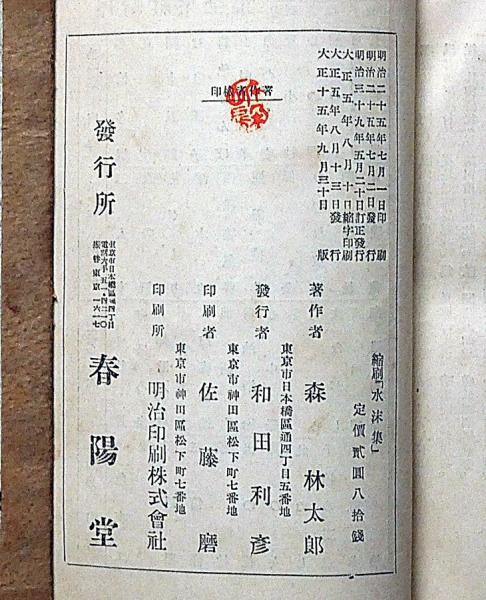 明治二十五年七月一日印刷
明治二十五年七月二日發行
明治三十九年五月二十日訂正發行
大正五年八月十日縮字印刷
大正五年八月十三日發行
大正十五年九月三十日版
著作者檢印
縮刷「水沫集」
定價貳圓八拾錢
著作者 森林太郎
東京市日本橋區通四丁目五番地
發行者 和田利彥
東京市神田區松下町七番地
印刷者 佐藤磨
東京市神田區松下町七番地
印刷所 明治印刷株式會社
發行所 春陽堂
東京市日本橋區通四丁目
振替東京一六一七